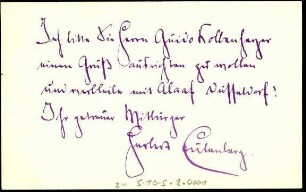 Ich bitte Sie Herrn Guido Kollenscherger
einen Gruß ausrichten zu wollen
und verbleibe mit Alaaf Düsseldorf!
Ihr getreuer Mitbürger
Herbert Eulenberg.